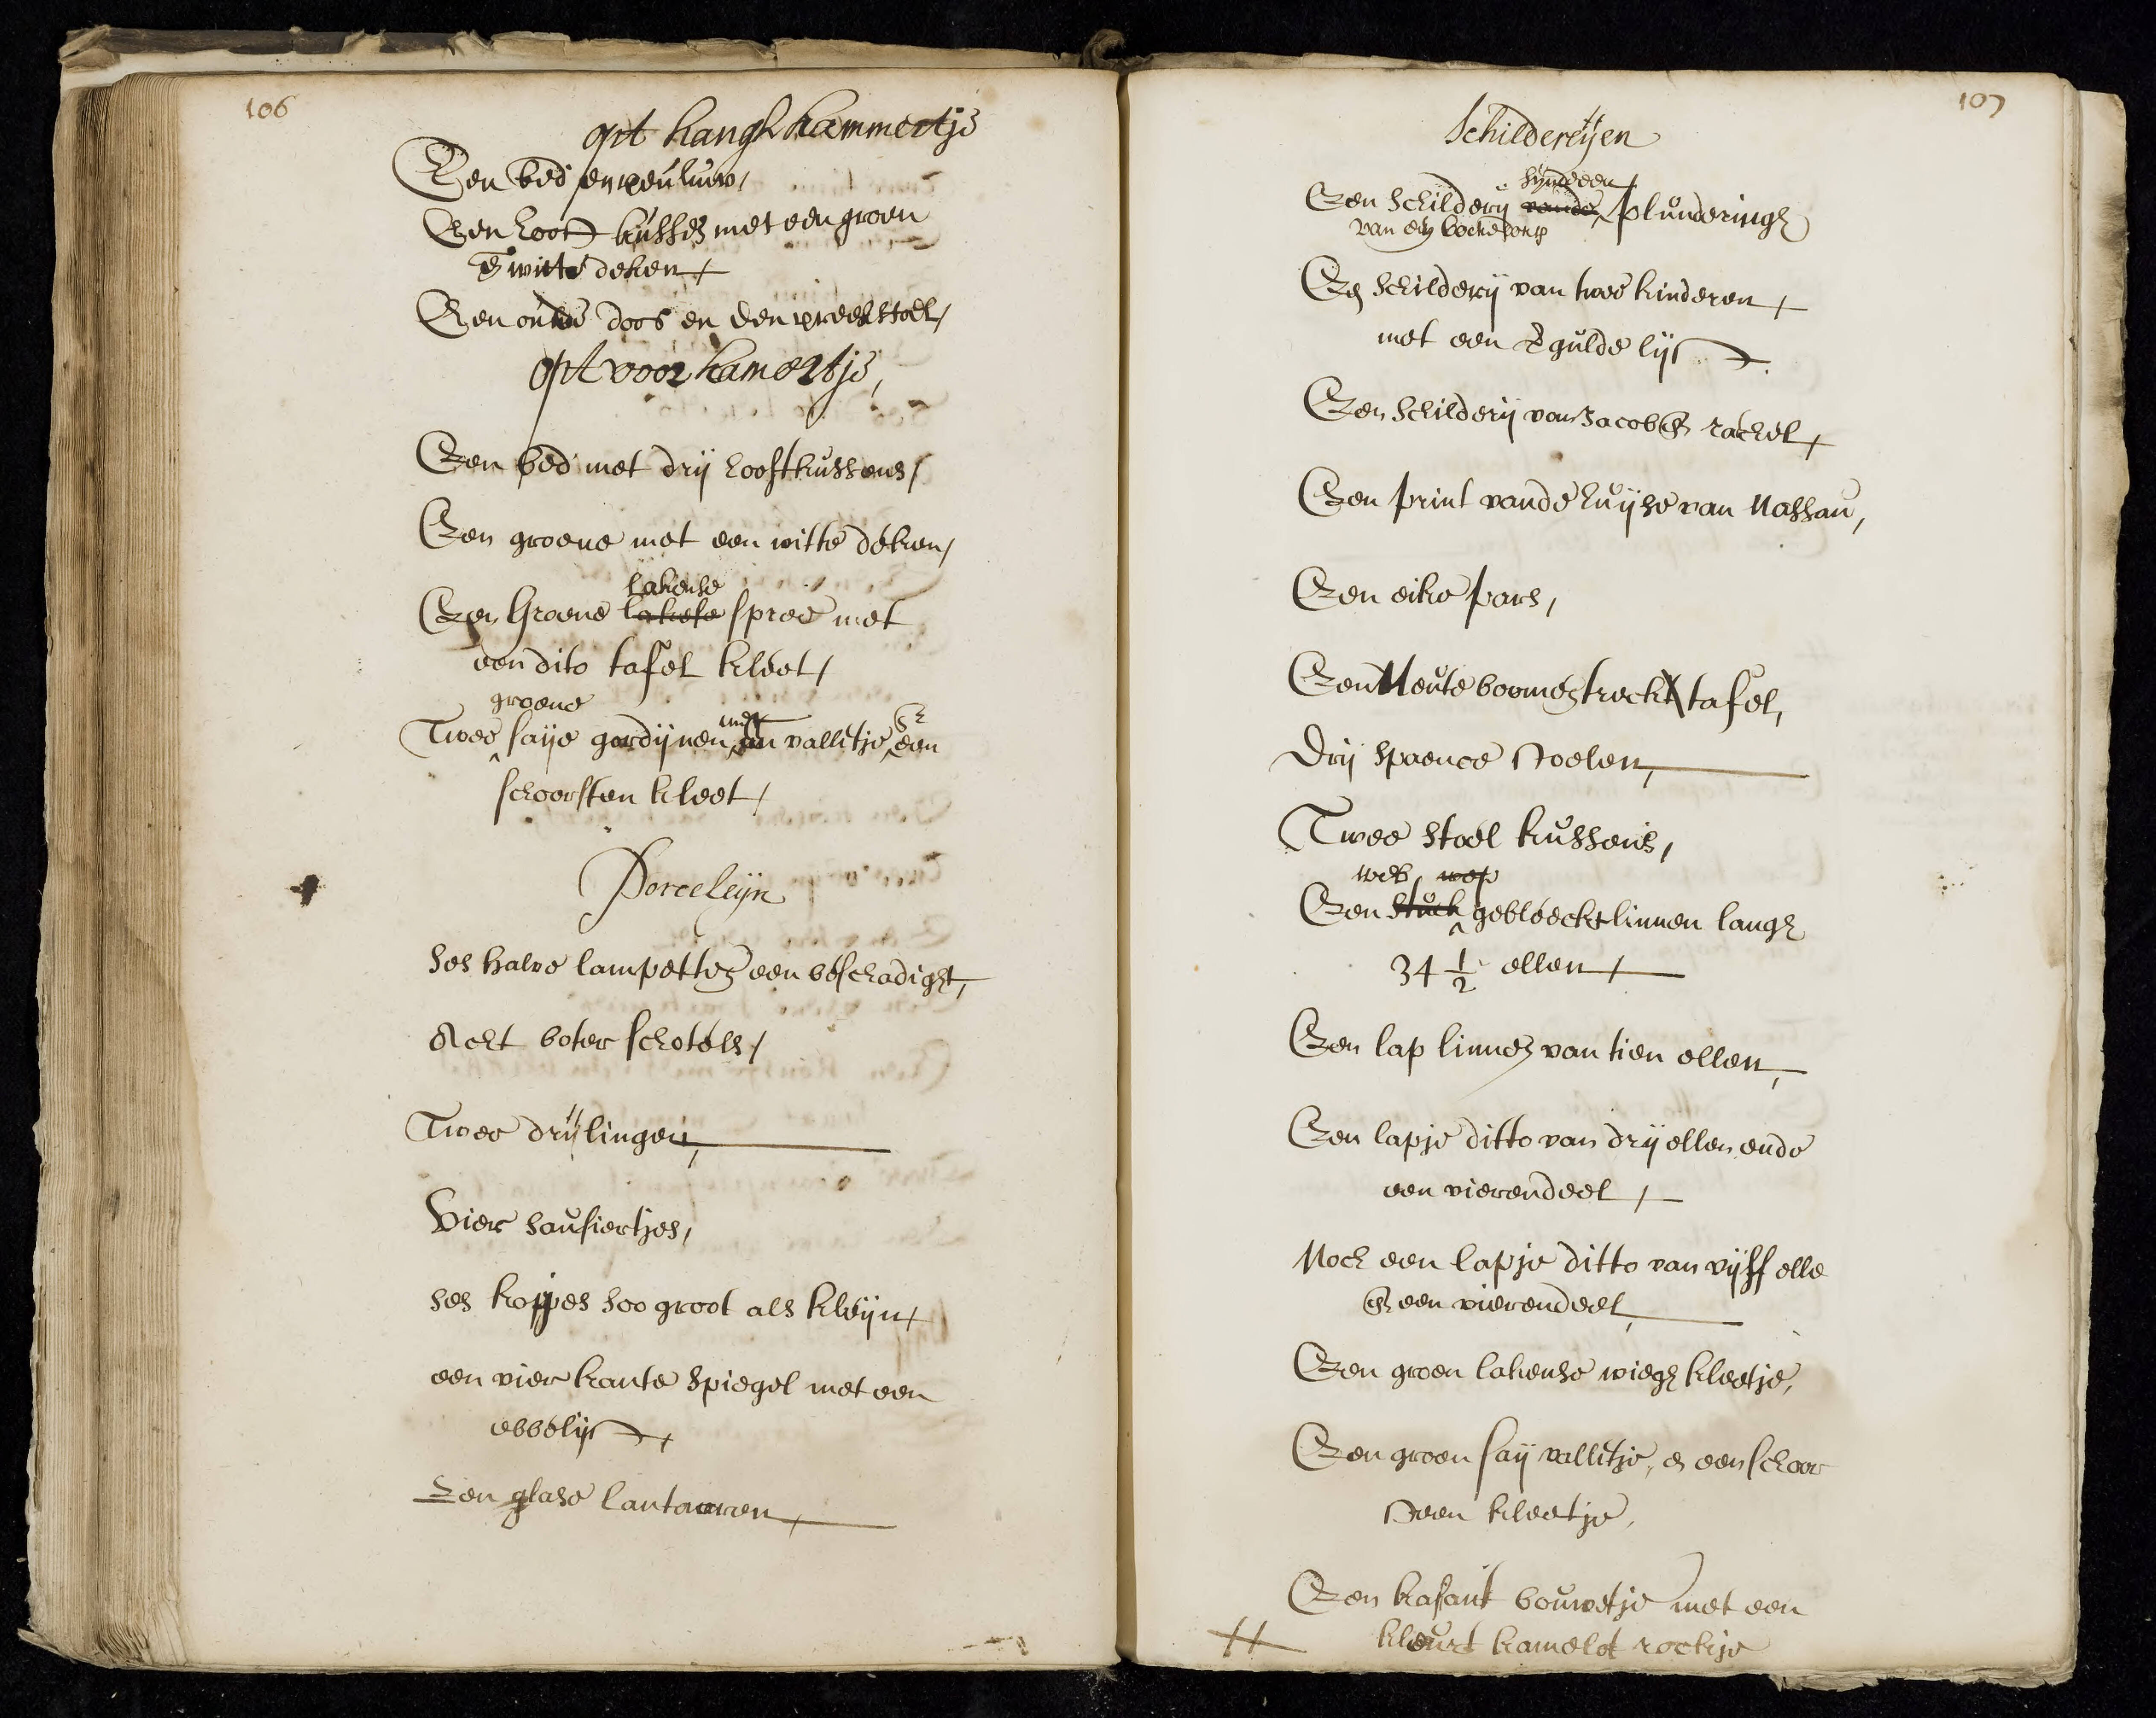 106
opt hangh kammertje
Een bed en peuluw,
Een hooft kussen met een groen
en witte deken,
Een oude doos en een preekstoel,
opt voor kamertje,
Een bed met drij hooftkussens,
Een groene met een witte deken,
lakense
Een Groene lakese spree met
een dito tafel kleet,
groene
met en
Twee saije gordijnen, en valletje, een
schoorsten kleet,
Porceleijn
ses halve lampetten een beschadight,
Acht boter schotels,
Twee drijlingen,
Vier sausiertjes,
ses kopjes soo groot als kleijn,
een vier kante spiegel met een
ebbelijst,
Een glase lantaeren,
107
Schildereijen
sijnde een
Een Schilderij vande plunderingh
van een
Een schilderij van twee kinderen,
met een vergulde lijst,
Een schilderij van Jacob en rachel,
Een print vande huijse van Nassau,
Een eike pars,
Een Neute boome streckt tafel,
Drij spaence stoelen,
Twee stoel kussens,
web, wep
Een stuck gebleeckt linnen langh
34 1/2 ellen,
Een lap linnen van tien ellen,
Een lapje ditto van drij ellen ende
een vierendeel,
Noch een lapje ditto van vijff elle
en een vierendeel,
Een groen lakense wiegh kleetje,
Een groen saij valletje, en een schoor
steen kleetje,
Een kasant bouwetje met een
kleurt kamelot rockje